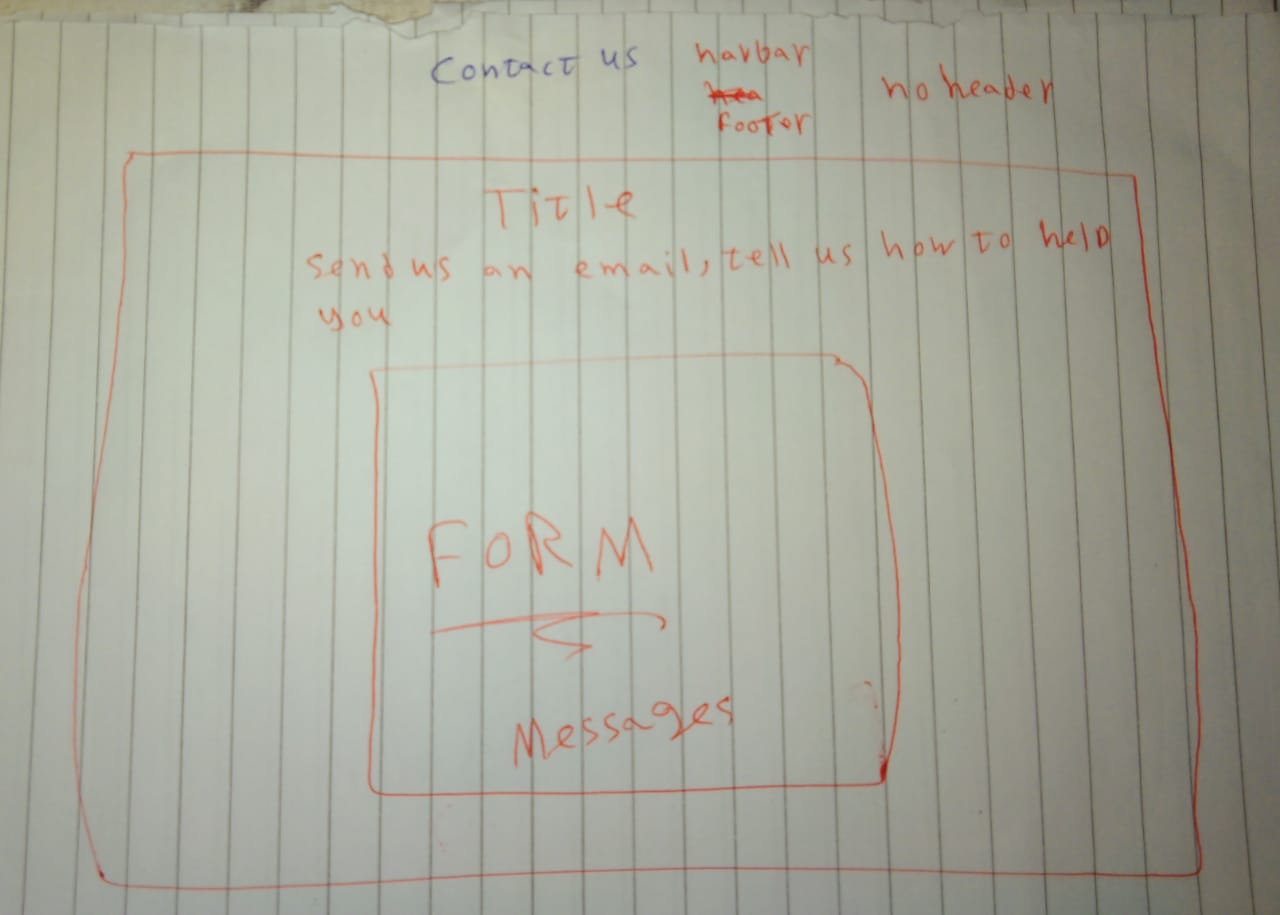 Contact us
navbar
footer
no header
Title
Send us an email, tell us how to help
you
FORM
Messages